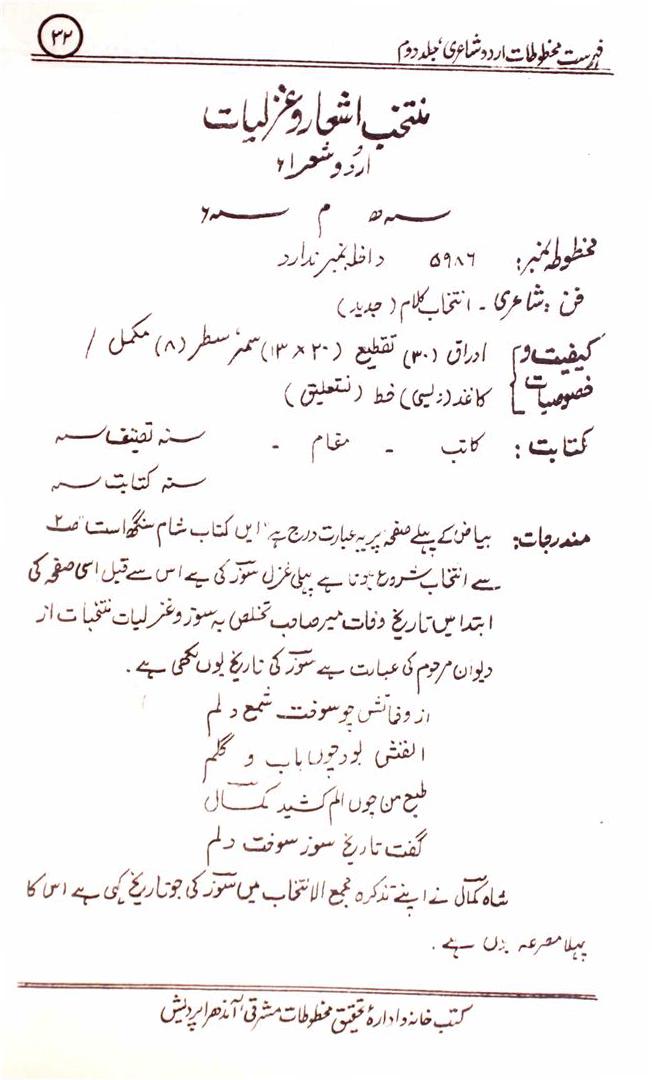 ۳۲
فہرست مخطوطات اردو شاعری، جلد دوم
منتخب اشعار و غزلیات
اردو شعراء
سنہ ھ م سنہ ء
مخطوطہ نمبر: ۵۹۸۶ داخلہ نمبر ندارد
فن : شاعری ۔ انتخاب کلام (جدید)
کیفیت و اوراق (۳۰) تقطیع (۲۰ × ۱۳) سمر سطر (۸) مکمل /
خصوصیات کاغذ (دیسی) خط (نستعلیق)
کتابت : کاتب ۔ مقام ۔ سنہ تصنیف سنہ
سنہ کتابت سنہ
مندرجات: بیاض کے پہلے صفحہ پر یہ عبارت درج ہے "ایں کتاب شام سنگھ است" صـ ۲
سے انتخاب شروع ہوتا ہے پہلی غزل سوز کی ہے اس سے قبل اسی صفحہ کی
ابتدا میں تاریخ وفات میر صاحب تخلص بہ سوز و غزلیات منتخبات از
دیوان مرحوم کی عبارت ہے سوز کی تاریخ یوں لکھی ہے ۔
از وفاتش چو سوخت شمع دلم
الفتش بود چوں باب و گلم
طبع من چوں الم کشید کمال
گفت تاریخ سوز سوخت دلم
شاہ کمال نے اپنے تذکرہ مجمع الانتخاب میں سوز کی جو تاریخ کہی ہے اس کا
پہلا مصرعہ یوں ہے ۔
کتب خانہ و ادارۂ تحقیق مخطوطات مشرقی، آندھرا پردیش